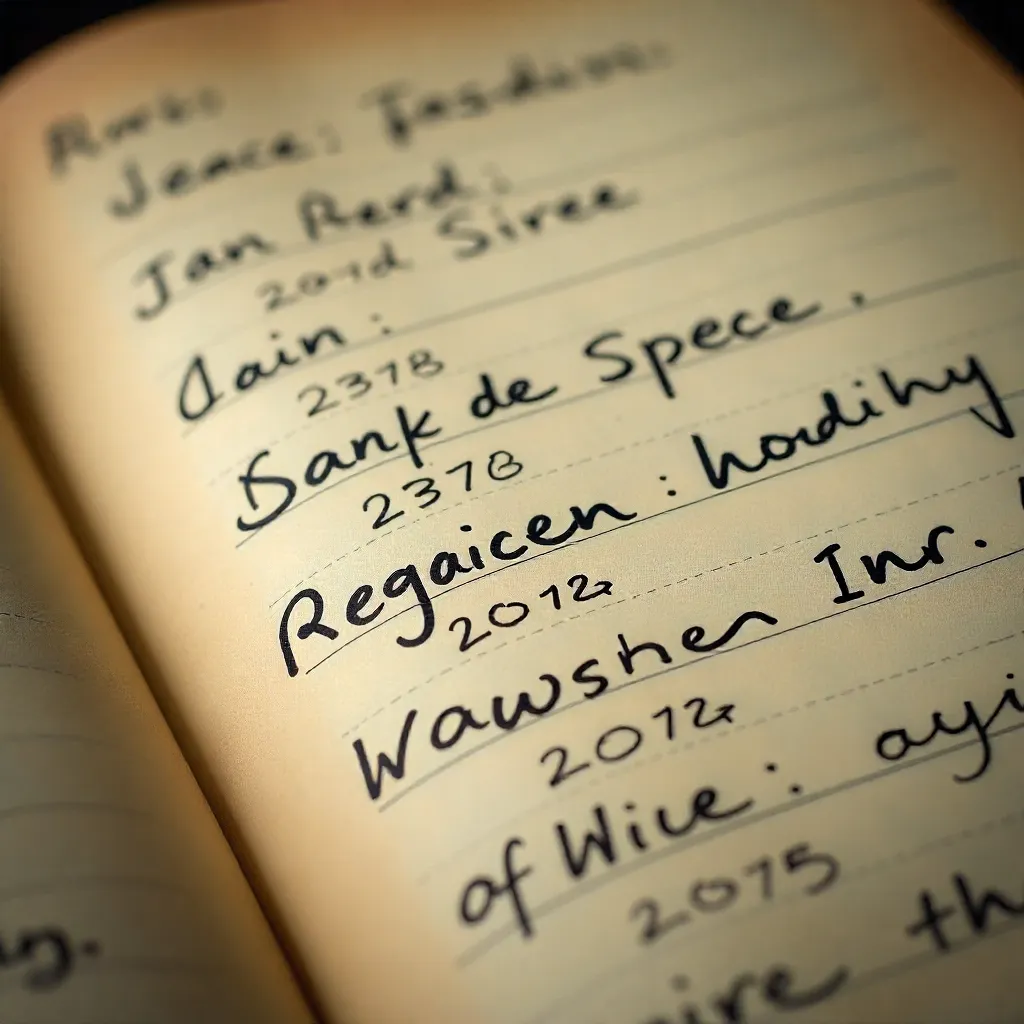 Jence: Tesdire.
Jan Rerd:
Siree
Cain:
2378
Bank de Spece.
2378
Regaicen: hordihy
2012
Wawsher Inr.
2012
of Wice: ayi
2075
ire th
ing.